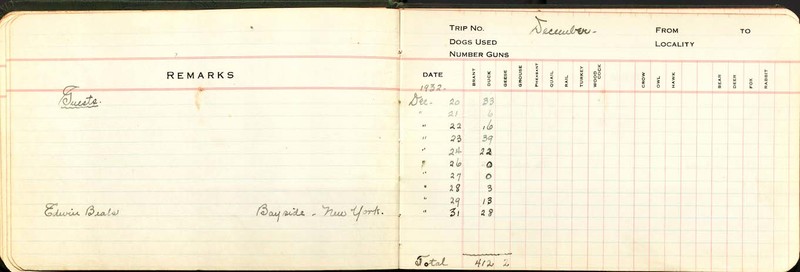 REMARKS
Guests.
Edwin Beals Bayside - New York.
TRIP NO. December- FROM TO
DOGS USED LOCALITY
NUMBER GUNS
DATE BRANT DUCK GEESE GROUSE PHEASANT QUAIL RAIL TURKEY WOOD COCK CROW OWL HAWK BEAR DEER FOX RABBIT
1932.
Dec. 20 33
" 21 6
" 22 16
" 23 39
" 24 22
" 26 0
" 27 0
" 28 3
" 29 13
" 31 28
Total 412 2